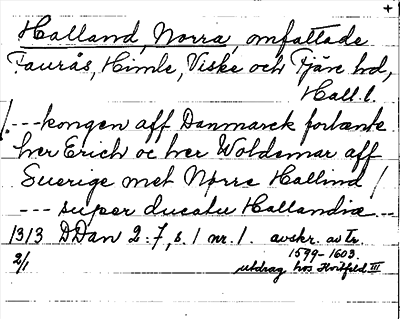 +
Halland, Norra, omfattade
Faurås, Himle, Viske och Fjäre hd,
Hall.l.
/. --- kongen aff Danmarck forlænte
her Erich oc her Woldemar aff
Suerige met Nørre Hallind /
--- super ducatu Hallandiæ ---
1313 DDan 2:7, s. 1 nr. 1. avskr. av tr.
2/1 1599-1603.
utdrag hos Hvitfeld III